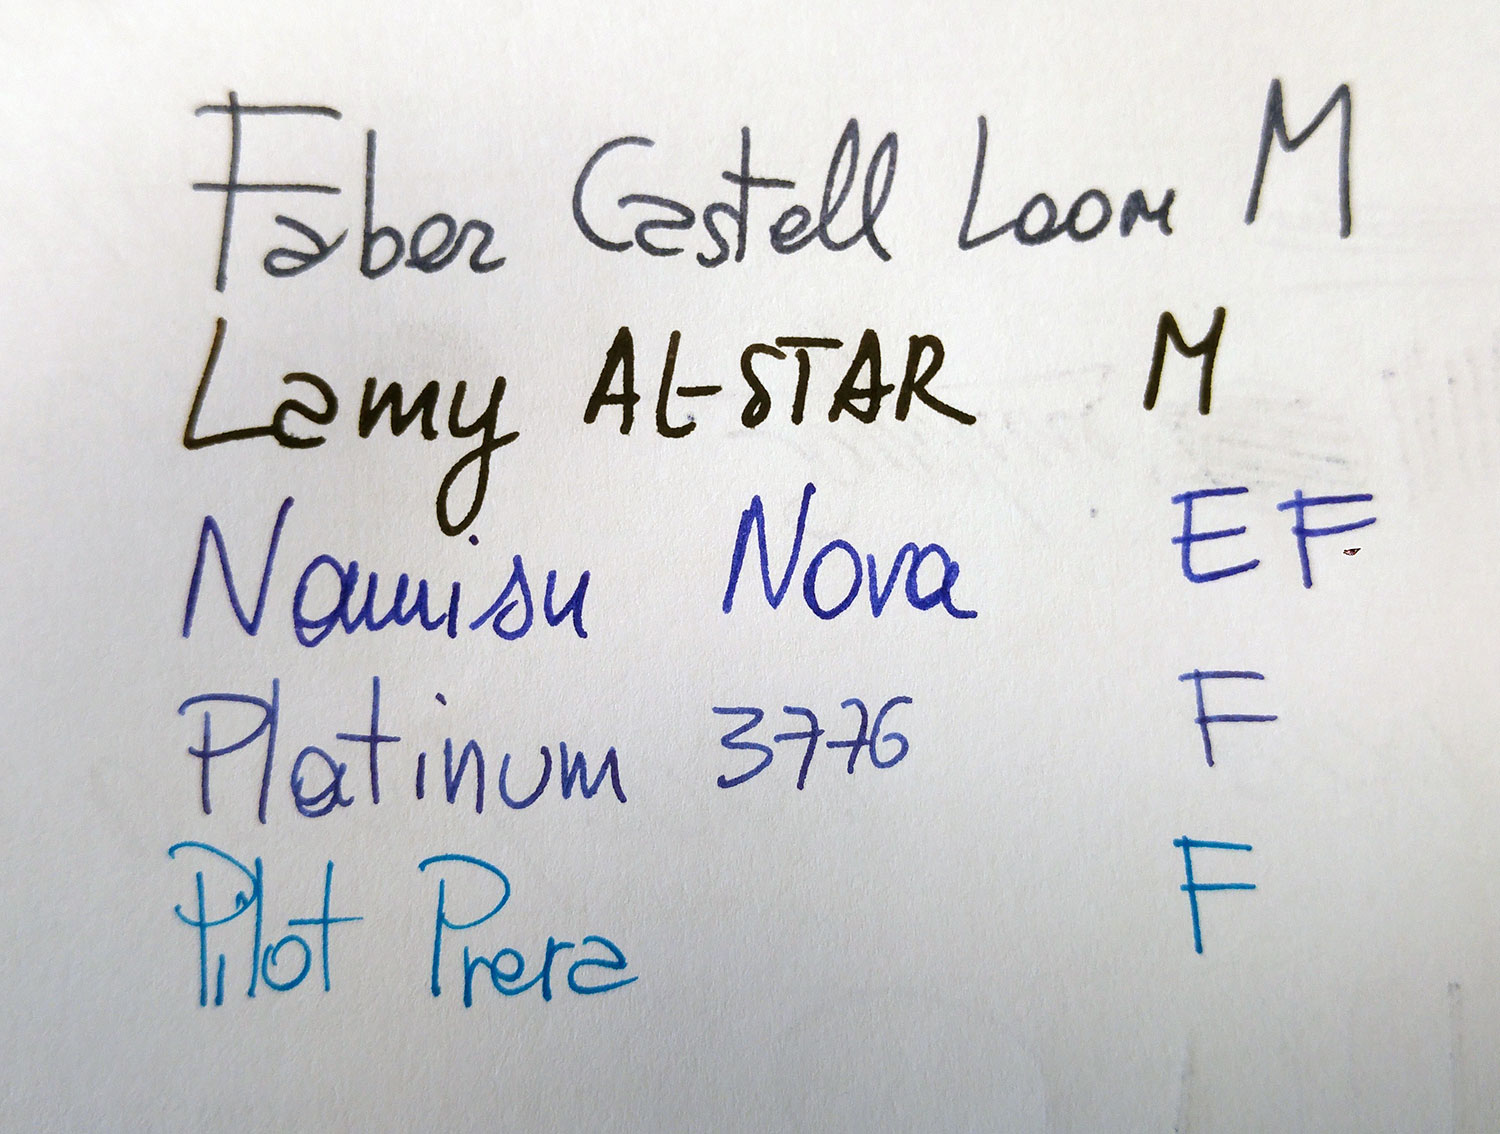 Faber Castell Loom M
Lamy AL-STAR M
Namisu Nova EF
Platinum 3776 F
Pilot Prera F